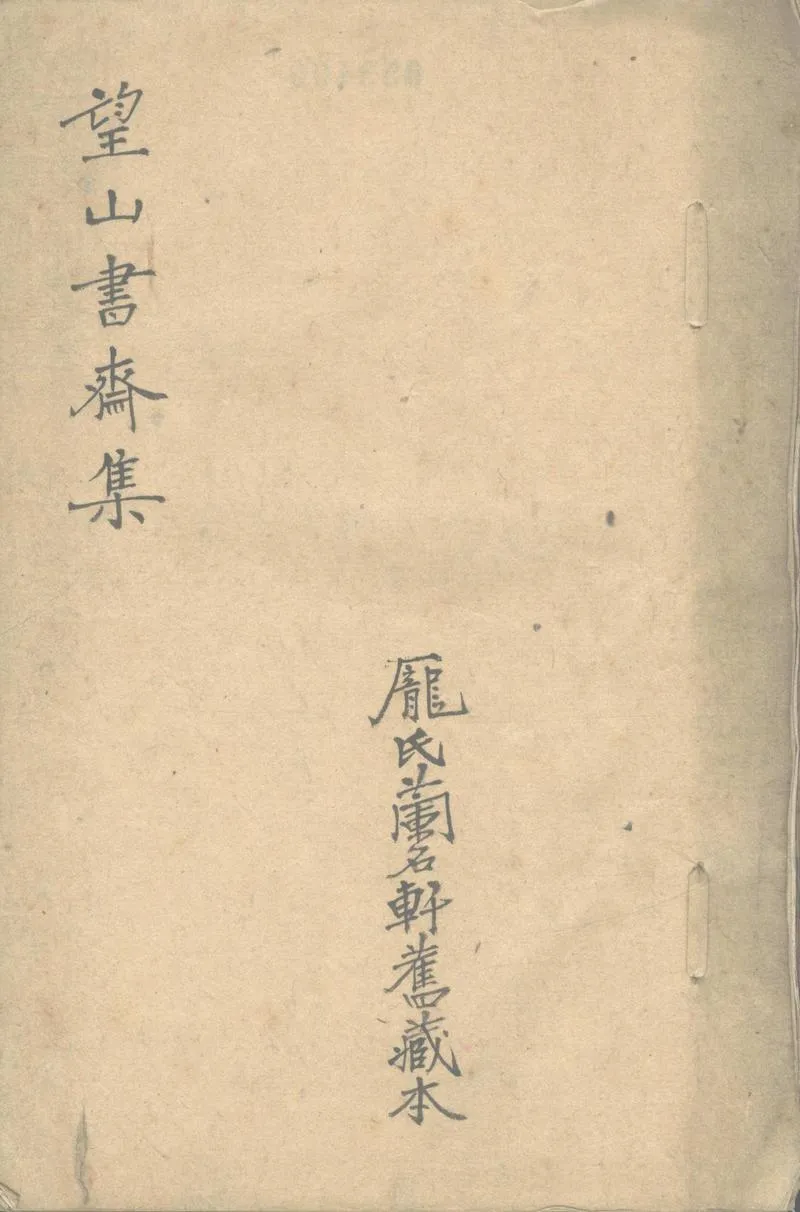 望山書齋集
龎氏蘭名軒舊藏本